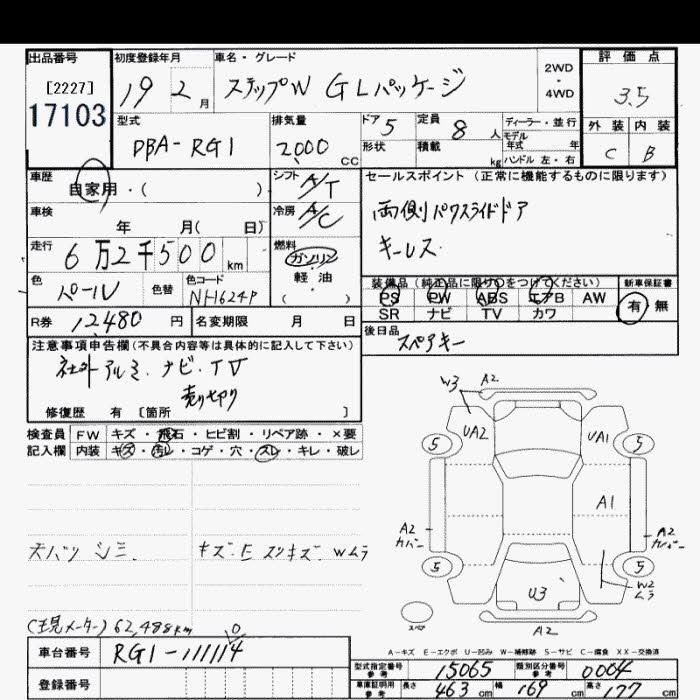 出品番号
[2227]
17103
初度登録年月
19 2 月
車名・グレード
ステップW GLパッケージ
2WD
・
4WD
評価点
3.5
外装 内装
C B
型式
DBA-RG1
排気量
2000 CC
ドア 5
形状
定員 8 人
積載 kg
ディーラー・並行
モデル
年式 年
ハンドル 左・右
車歴
自家用・( )
シフト A/T
車検
年 月( 日)
冷房 A/C
走行
6万2千500 km
燃料
ガソリン
軽・油
( )
色
パール
色替
色コード
NH624P
R券 12480 円
名変期限 月 日
セールスポイント (正常に機能するものに限ります)
両側パワスライドドア
キーレス
装備品(純正品に限り○をつけてください)
PS PW ABS エアB AW
SR ナビ TV カワ
新車保証書
有 無
後日品
スペアキー
注意事項申告欄(不具合内容等は具体的に記入して下さい)
社外アルミ.ナビ.TV
売り切り
修復歴 有 [箇所 ]
検査員 FW キズ・飛石・ヒビ割・リペア跡・×要
記入欄 内装 キズ・汚レ・コゲ・穴・スレ・キレ・破レ
天バリ シミ.
キズ.E スリキズ.Wムラ
W3 A2
UA2 UA1
5 5
A1
A2
カバー
A2
カバー
5 5
W2
ムラ
U3
スペア
A2
(現メーター) 62,488km
A-キズ E-エクボ U-凹み W-補修跡 S-サビ C-腐食 XX-交換済
0
車台番号 RG1-1111114
登録番号
型式指定番号
参考
15065
類別区分番号
参考
0004
車庫証明用
参考
長さ 463 cm 幅 169 cm 高さ 177 cm